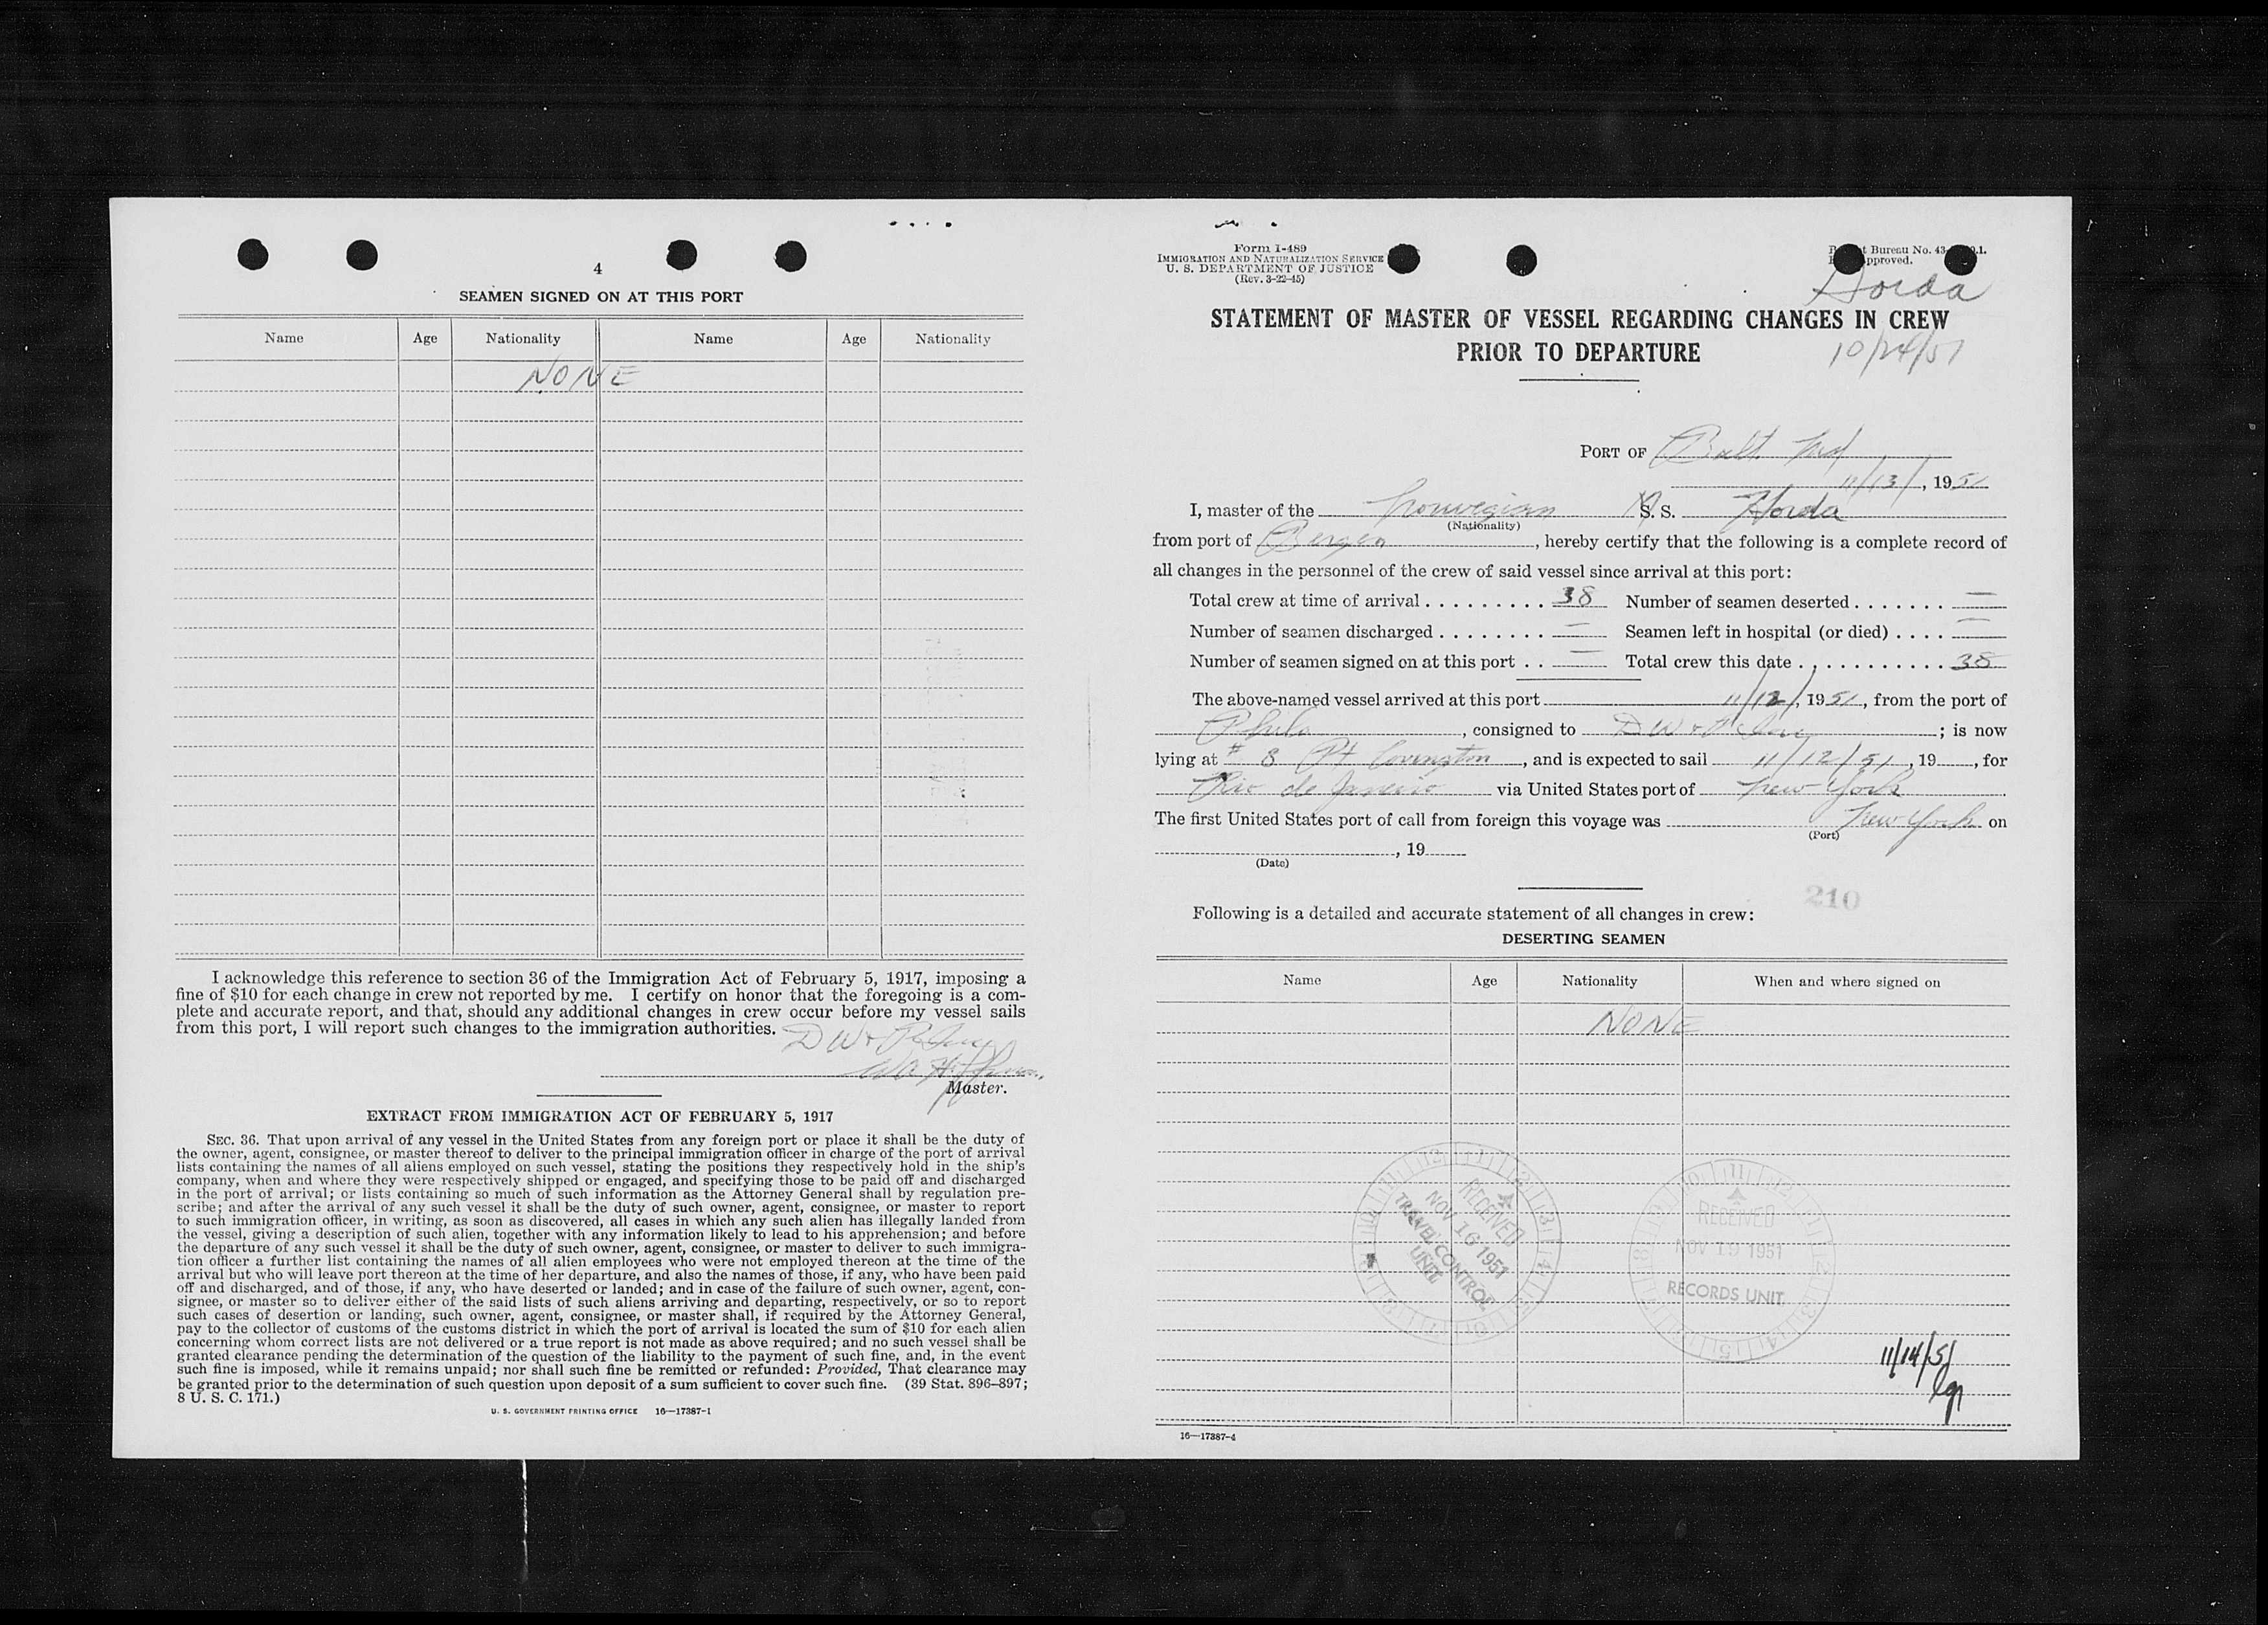 4
SEAMEN SIGNED ON AT THIS PORT
Name Age Nationality Name Age Nationality
NONE
I acknowledge this reference to section 36 of the Immigration Act of February 5, 1917, imposing a
fine of $10 for each change in crew not reported by me. I certify on honor that the foregoing is a com-
plete and accurate report, and that, should any additional changes in crew occur before my vessel sails
from this port, I will report such changes to the immigration authorities.
Master.
EXTRACT FROM IMMIGRATION ACT OF FEBRUARY 5, 1917
SEC. 36. That upon arrival of any vessel in the United States from any foreign port or place it shall be the duty of
the owner, agent, consignee, or master thereof to deliver to the principal immigration officer in charge of the port of arrival
lists containing the names of all aliens employed on such vessel, stating the positions they respectively hold in the ship's
company, when and where they were respectively shipped or engaged, and specifying those to be paid off and discharged
in the port of arrival; or lists containing so much of such information as the Attorney General shall by regulation pre-
scribe; and after the arrival of any such vessel it shall be the duty of such owner, agent, consignee, or master to report
to such immigration officer, in writing, as soon as discovered, all cases in which any such alien has illegally landed from
the vessel, giving a description of such alien, together with any information likely to lead to his apprehension; and before
the departure of any such vessel it shall be the duty of such owner, agent, consignee, or master to deliver to such immigra-
tion officer a further list containing the names of all alien employees who were not employed thereon at the time of the
arrival but who will leave port thereon at the time of her departure, and also the names of those, if any, who have been paid
off and discharged, and of those, if any, who have deserted or landed; and in case of the failure of such owner, agent, con-
signee, or master so to deliver either of the said lists of such aliens arriving and departing, respectively, or so to report
such cases of desertion or landing, such owner, agent, consignee, or master shall, if required by the Attorney General,
pay to the collector of customs of the customs district in which the port of arrival is located the sum of $10 for each alien
concerning whom correct lists are not delivered or a true report is not made as above required; and no such vessel shall be
granted clearance pending the determination of the question of the liability to the payment of such fine, and, in the event
such fine is imposed, while it remains unpaid; nor shall such fine be remitted or refunded: Provided, That clearance may
be granted prior to the determination of such question upon deposit of a sum sufficient to cover such fine. (39 Stat. 896–897;
8 U. S. C. 171.)
U. S. GOVERNMENT PRINTING OFFICE 16—17387-1
Form I-489
IMMIGRATION AND NATURALIZATION SERVICE
U. S. DEPARTMENT OF JUSTICE
(Rev. 3-22-45)
Bureau No. 43-
pproved.
Horda
STATEMENT OF MASTER OF VESSEL REGARDING CHANGES IN CREW
PRIOR TO DEPARTURE
10/24/51
PORT OF Balt. Md
11/13/, 1951
I, master of the Norwegian M S. S. Horda
(Nationality)
from port of Bergen, hereby certify that the following is a complete record of
all changes in the personnel of the crew of said vessel since arrival at this port:
Total crew at time of arrival . . . . . . . . . . 38 Number of seamen deserted . . . . . . . —
Number of seamen discharged . . . . . . . . — Seamen left in hospital (or died) . . . . —
Number of seamen signed on at this port . . — Total crew this date . . . . . . . . . . . 38
The above-named vessel arrived at this port 11/12/, 1951, from the port of
Phila, consigned to ; is now
lying at # 8 Pt Covington, and is expected to sail 11/12/51, 19 , for
Rio de Janeiro via United States port of New York
The first United States port of call from foreign this voyage was New York on
(Port)
, 19
(Date)
210
Following is a detailed and accurate statement of all changes in crew:
DESERTING SEAMEN
Name Age Nationality When and where signed on
NONE
RECEIVED
NOV 16 1951
TRAVEL CONTROL
UNIT
RECEIVED
NOV 19 1951
RECORDS UNIT
11/14/51
16—17387-4